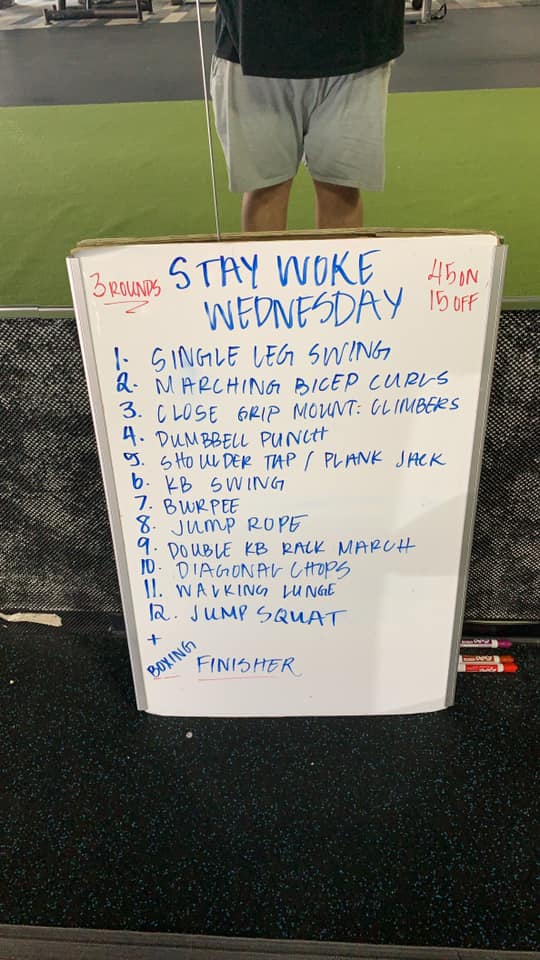 3 ROUNDS
STAY WOKE
WEDNESDAY
45 ON
15 OFF
1. SINGLE LEG SWING
2. MARCHING BICEP CURLS
3. CLOSE GRIP MOUNT: CLIMBERS
4. DUMBBELL PUNCH
5. SHOULDER TAP / PLANK JACK
6. KB SWING
7. BURPEE
8. JUMP ROPE
9. DOUBLE KB RACK MARCH
10. DIAGONAL CHOPS
11. WALKING LUNGE
12. JUMP SQUAT
+
BOXING FINISHER